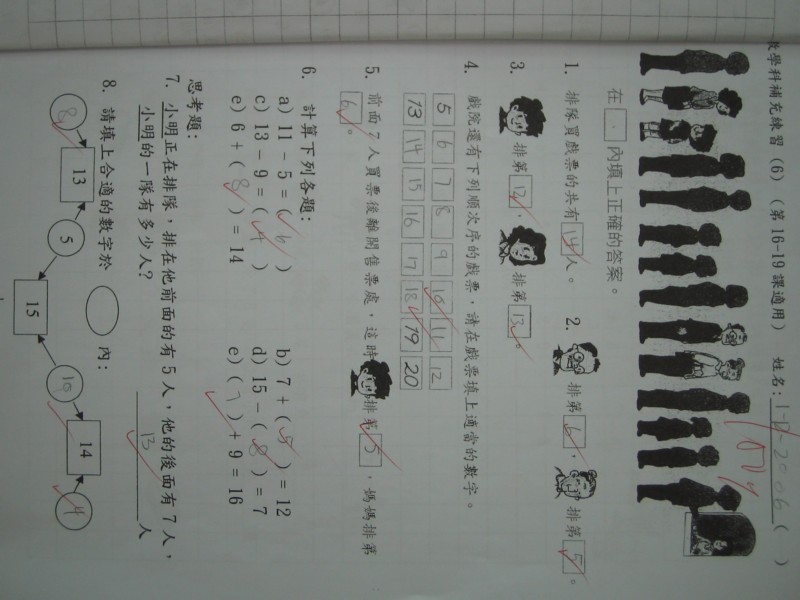 數學科補充練習（6）（第 16-19 課適用） 姓名: 1-12-2006 ( )
100%
在□內填上正確的答案。
1. 排隊買戲票的共有 14 人。 2. 排第 6，排第 5。
3. 排第 12，排第 13。
4. 戲院還有下列順次序的戲票，請在戲票填上適當的數字。
5 6 7 8 9 10 11 12
13 14 15 16 17 18 19 20
5. 前面 7 人買票後離開售票處，這時排第 5，媽媽排第
6。
6. 計算下列各題:
a) 11 - 5 = ( 6 ) b) 7 + ( 5 ) = 12
c) 13 - 9 = ( 4 ) d) 15 - ( 8 ) = 7
e) 6 + ( 8 ) = 14 e) ( 7 ) + 9 = 16
思考題:
7. 小明正在排隊，排在他前面的有 5 人，他的後面有 7 人，
小明的一隊有多少人? 13 人
8. 請填上合適的數字於 內:
8 13 5 15 10 14 4